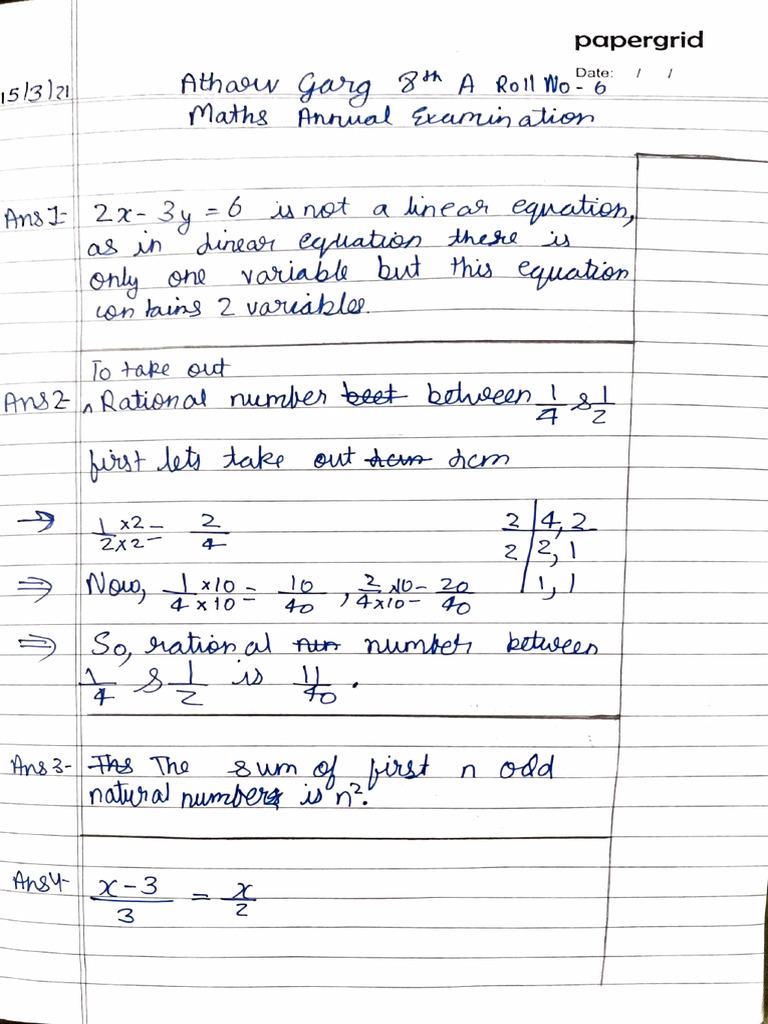 papergrid
Date: / /
15/3/21 Atharv Garg 8th A Roll No - 6
Maths Annual Examination
Ans 1- 2x - 3y = 6 is not a linear equation,
as in linear equation there is
only one variable but this equation
contains 2 variables.
To take out
Ans 2- ^ Rational number beet between 1/4 & 1/2
first lets take out lcm lcm
→ 1×2/2×2 = 2/4 2 | 4, 2
2 | 2, 1
⇒ Now, 1×10/4×10 = 10/40, 2×10/4×10 = 20/40 | 1, 1
⇒ So, rational num number between
1/4 & 1/2 is 11/40.
Ans 3- Ths The sum of first n odd
natural numbers is n².
Ans 4- x-3/3 = x/2